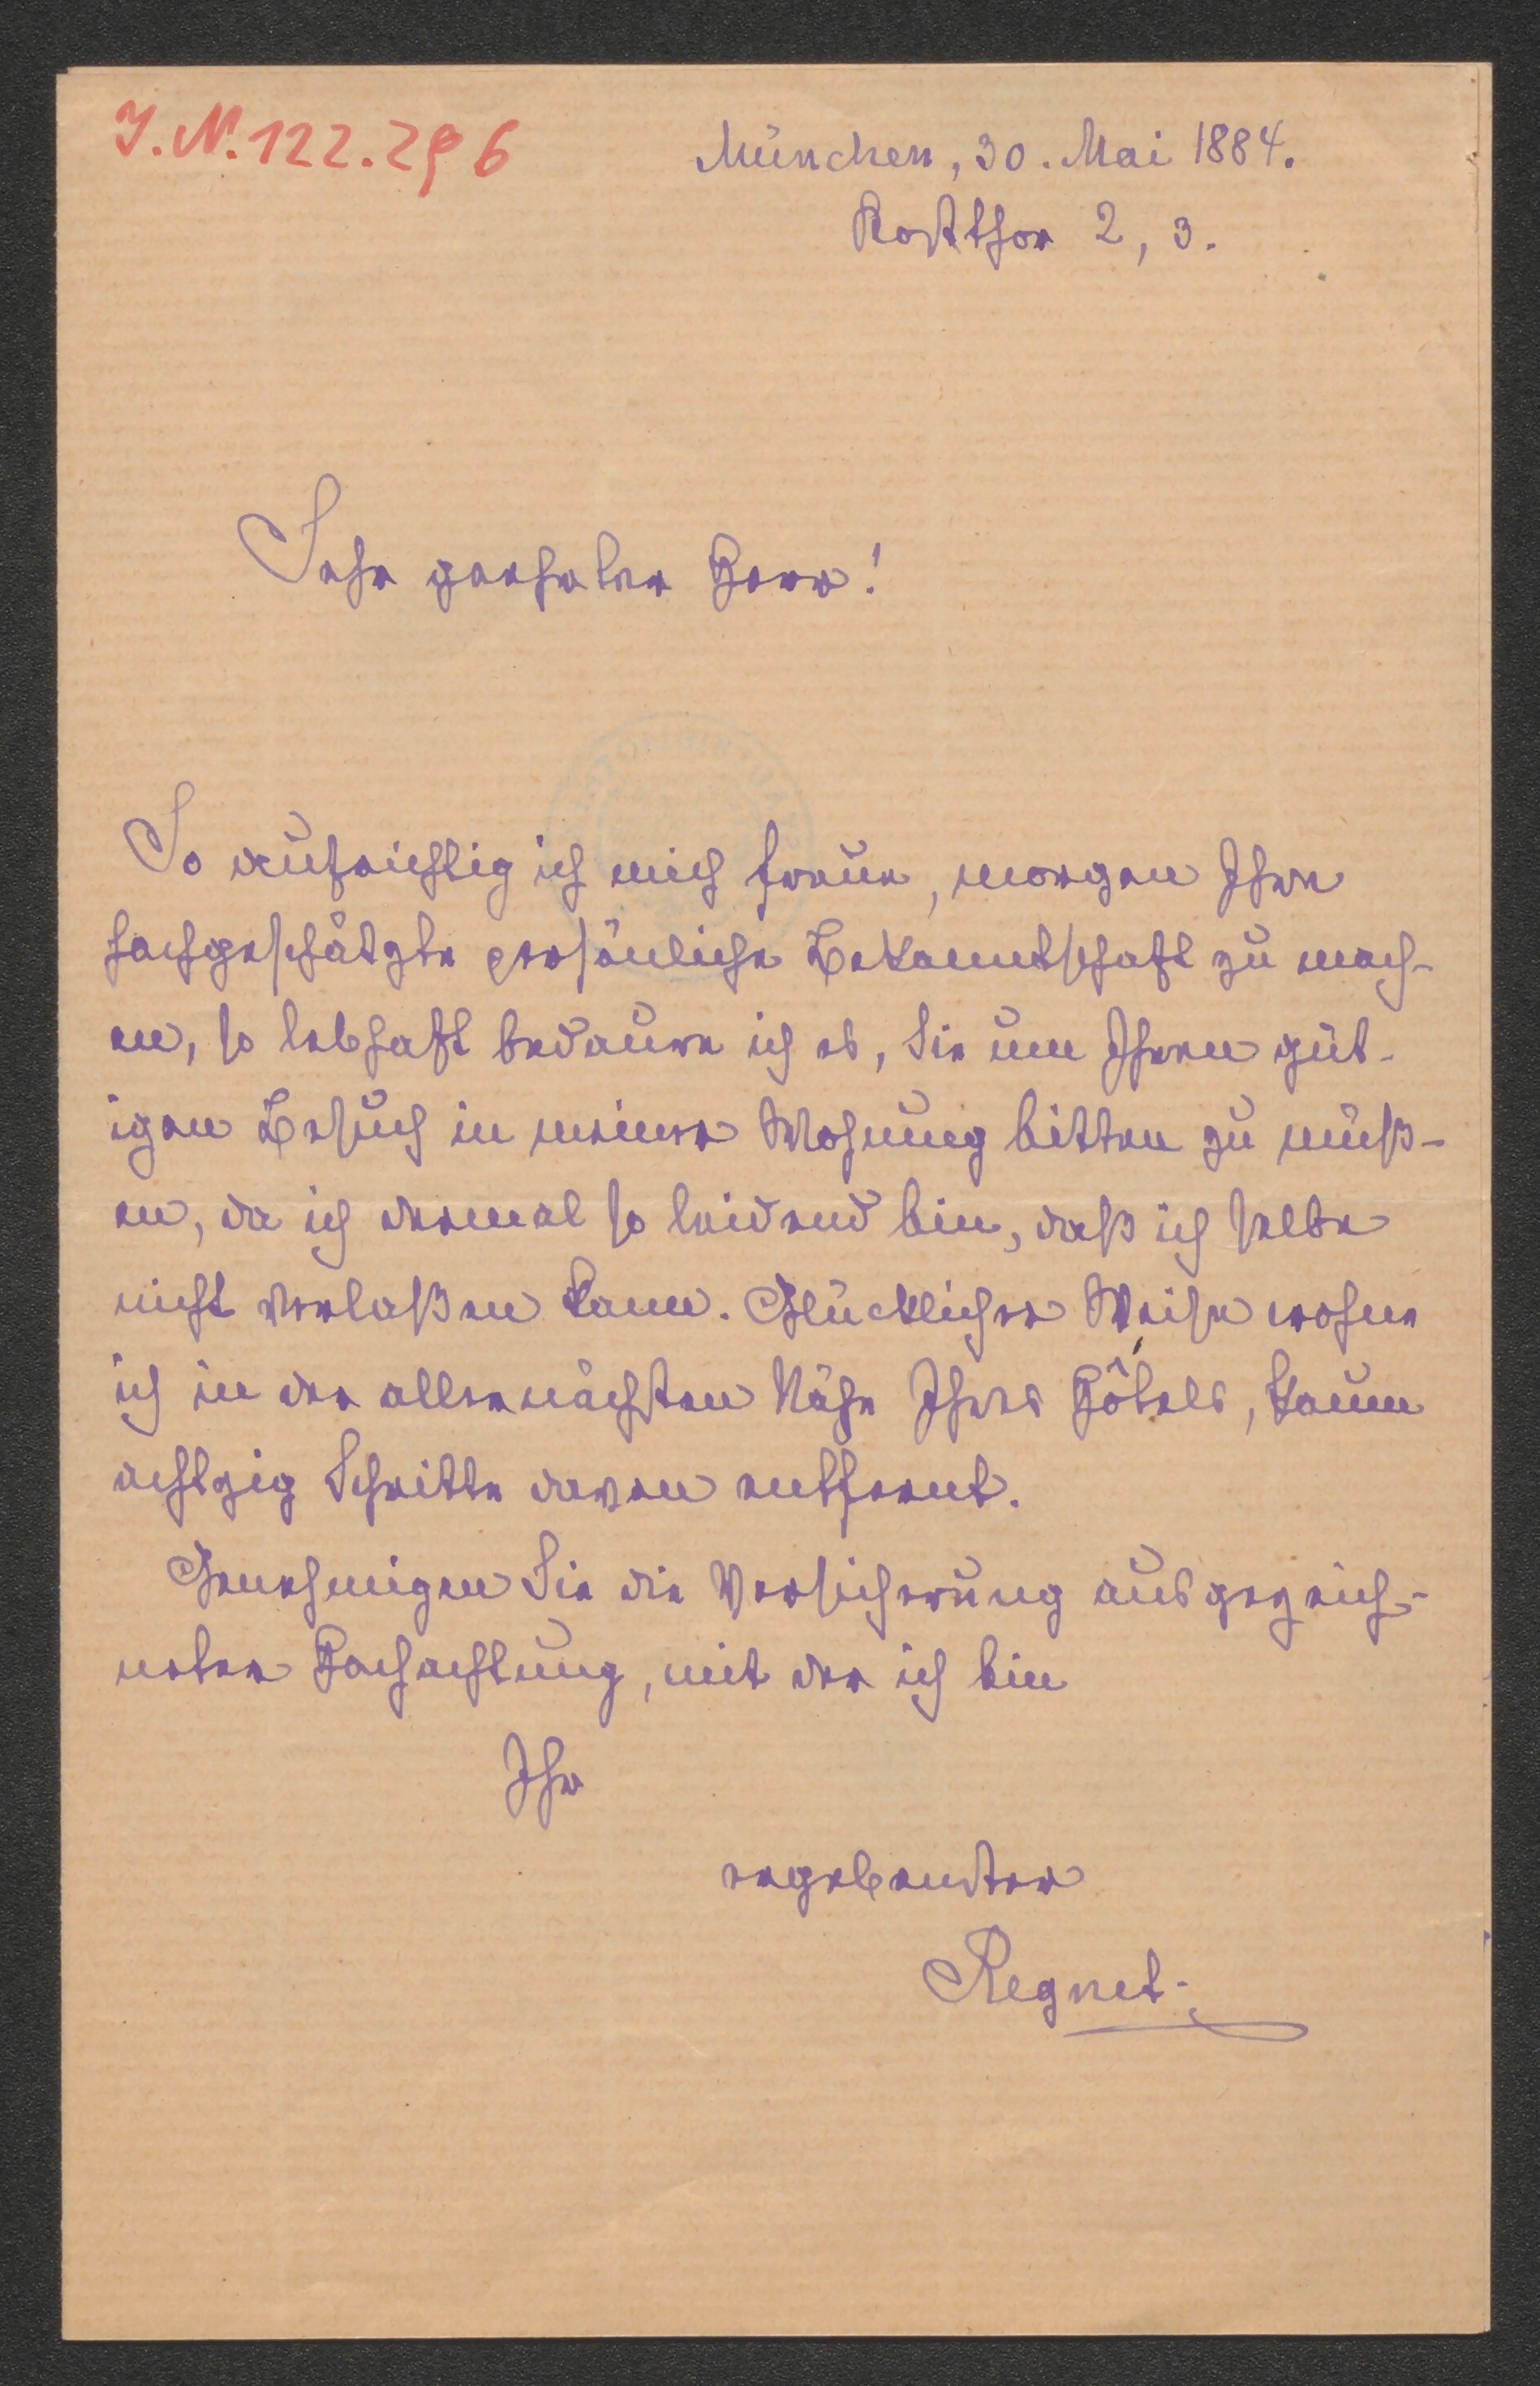 I.N. 122.296
München, 30. Mai 1884.
Kostthor 2, 3.
Sehr geehrter Herr!
So aufrichtig ich mich freue, morgen Ihre
hochgeschätzte persönliche Bekanntschaft zu mach-
en, so lebhaft bedaure ich es, Sie um Ihren güt-
igen Besuch in meiner Wohnung bitten zu müß-
en, da ich dermal so leidend bin, daß ich selbe
nicht verlaßen kann. Glücklicher Weise wohne
ich in der allernächsten Nähe Ihres Hôtels, kaum
achtzig Schritte davon entfernt.
Genehmigen Sie die Versicherung ausgezeich-
neter Hochachtung, mit der ich bin
Ihr
ergebenster
Regnet.